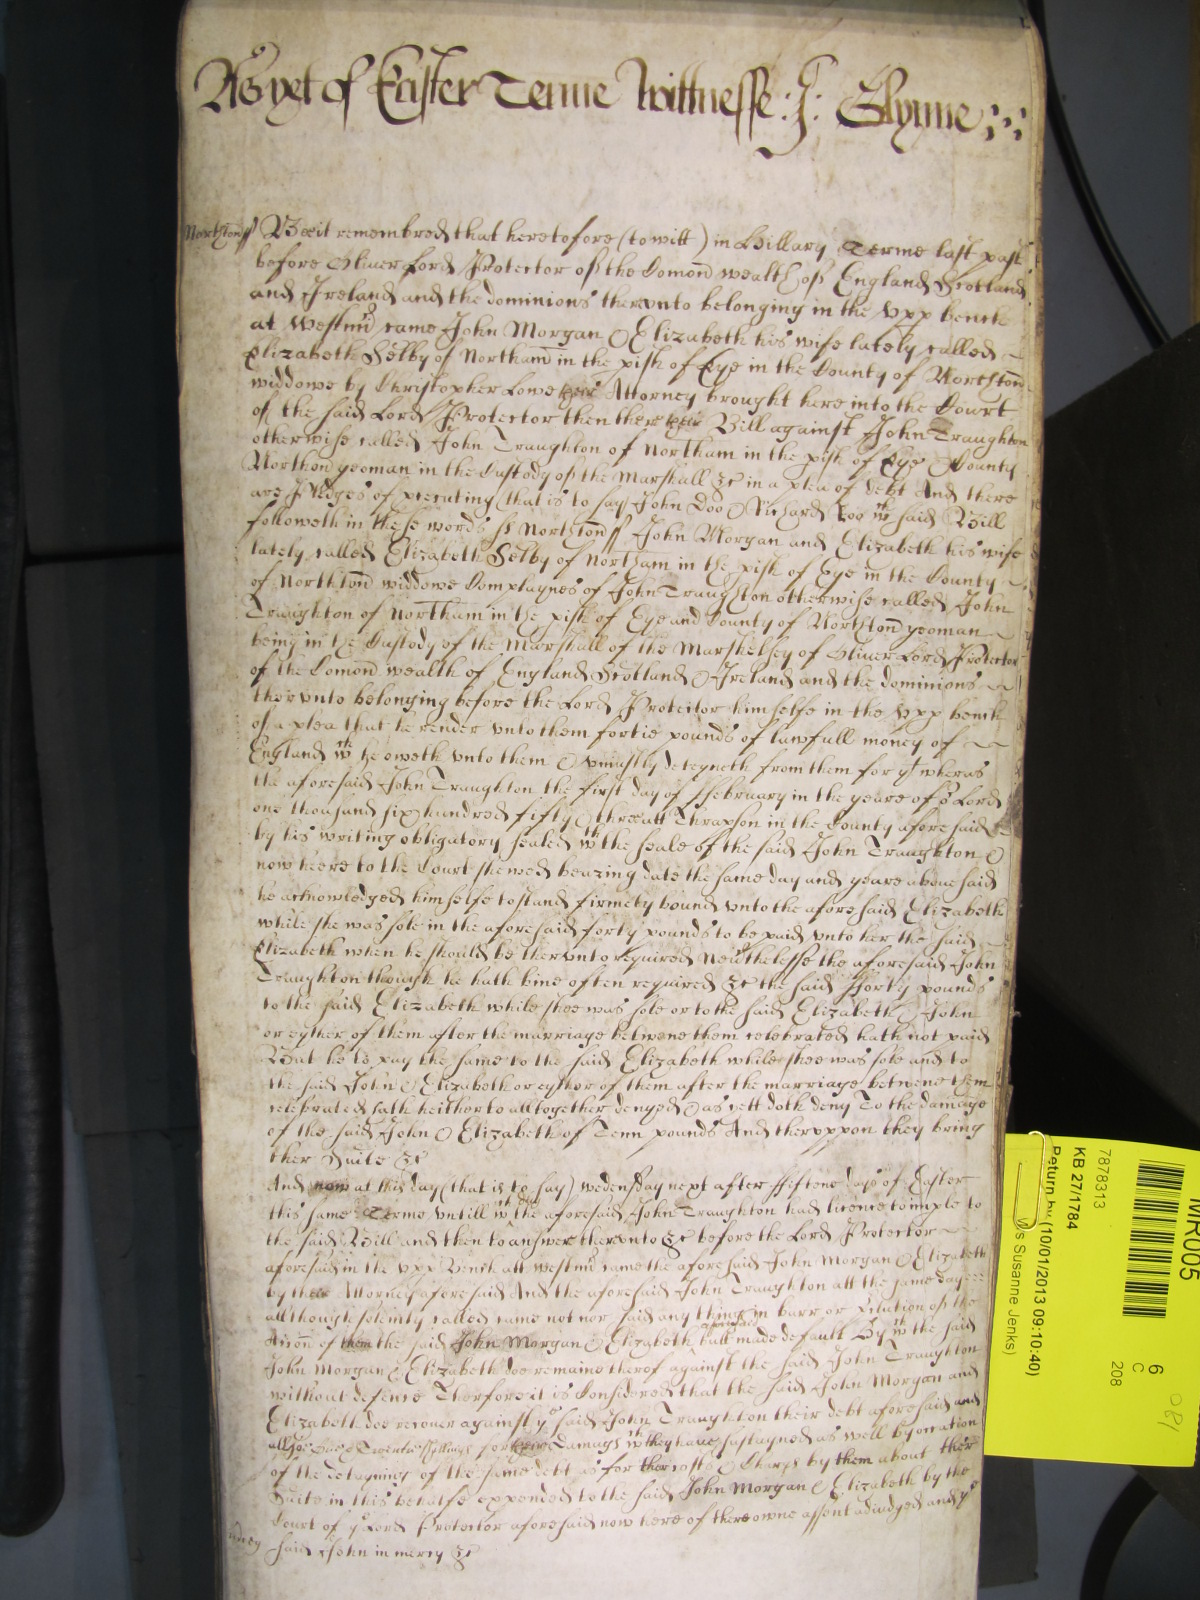 As yet of Easter Terme Wittnesse : J : Glynne
Northton ss Bee it remembred that heretofore (to witt) in Hillary Terme last past
before Oliver Lord Protector of the Comon wealth of England Scotland
and Ireland and the dominions therevnto belonging in the vpp bench
at Westm came John Morgan & Elizabeth his wife lately called
Elizabeth Selby of Northam in the pish of Eye in the County of Northton
widdowe by Christopher Lowe their Attorney brought here into the Court
of the said Lord Protector then there their Bill against John Traughton
otherwise called John Traughton of Northam in the pish of Eye & County
Northon yeoman in the Custody of the Marshall &c in a plea of debt And there
are pledges of psecuting that is to say John Doo & Richard Roo wch said Bill
followeth in these words ss Northton ss John Morgan and Elizabeth his wife
lately called Elizabeth Selby of Northam in the pish of Eye in the County
of Northton widdowe Complaynes of John Traughton otherwise called John
Traughton of Northam in the pish of Eye and County of Northton yeoman
being in the Custody of the Marshall of the Marshelsey of Oliver Lord Protector
of the Comon wealth of England Scotland & Ireland and the dominions
therevnto belonging before the Lord Protector himselfe in the vpp bench
of a plea that he render vnto them fortie pounds of lawfull money of
England wch he oweth vnto them & vniustly deteyneth from them for yt wheras
the aforesaid John Traughton the first day of ffebruary in the yeare of or Lord
one thousand six hundred fifty & three att Thrapson in the County aforesaid
by his writing obligatory sealed wth the seale of the said John Traughton &
now heere to the Court shewed bearing date the same day and yeare aboue said
he acknowledged himselfe to stand firmely bound vnto the aforesaid Elizabeth
while she was sole in the aforesaid forty pounds to be paid vnto her the said
Elizabeth when he should be thervnto required Neuthelesse the aforesaid John
Traughton though he hath bine often required &c the said fforty pounds
to the said Elizabeth while shee was sole or to the said Elizabeth & John
or eyther of them after the marriage betwene them celebrated hath not paid
But he to pay the same to the said Elizabeth while shee was sole and to
the said John & Elizabeth or eyther of them after the marriage betwene them
celebrated hath heitherto alltogether denyed & as yett doth deny To the damage
of the said John & Elizabeth of Tenn pounds And thervppon they bring
ther Suite &c
And now at this day (that is to say) wedensday next after ffiftene days of Easter
this same Terme vntill wch day the aforesaid John Traughton had licence to imple to
the said Bill and then to answere therevnto &c before the Lord Protector
aforesaid in the vpp Bench att westm came the aforesaid John Morgan & Elizabeth
by their Attorney aforesaid And the aforesaid John Traughton att the same day
although solemly called came not nor said any thing in barr or
of them the said John Morgan & Elizabeth aforesaid butt made default By wch the said
John Morgan & Elizabeth doe remaine therof against the said John Traughton
without defence Therfore it is Considered that the said John Morgan and
Elizabeth doe recouer against ye said John Traughton their debt aforesaid and
allsoe shyllings for their damags wch they haue sustayned as well by occation
of the detayning of the same debt as for ther costs & Charges by them about ther
Suite in this behalfe expended to the said John Morgan & Elizabeth by the
Court of ye Lord Protector aforesaid now here of there owne assent adiudged and ye
said John in mercy &c
MR005
6
C
208
7878313
KB 27/1784
Return by (10/01/2013 09:10:40)
Ms Susanne Jenks)